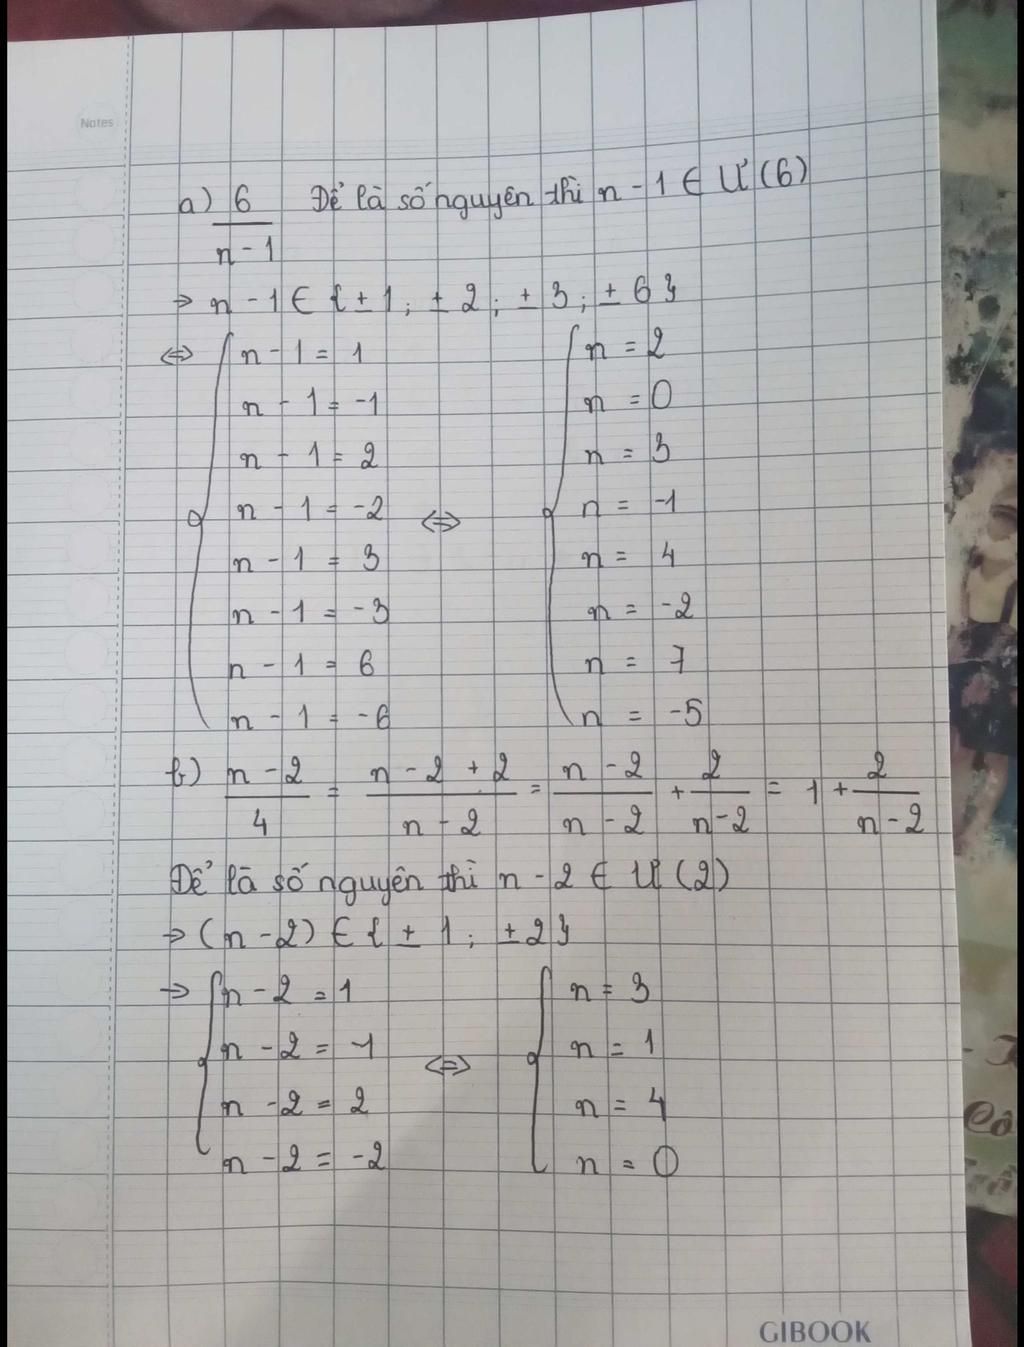 Notes
a) 6/(n - 1) Để là số nguyên thì n - 1 ∈ Ư (6)
=> n - 1 ∈ {± 1; ± 2; ± 3; ± 6}
<=> { n - 1 = 1 { n = 2
n - 1 = -1 n = 0
n - 1 = 2 n = 3
n - 1 = -2 <=> n = -1
n - 1 = 3 n = 4
n - 1 = -3 n = -2
n - 1 = 6 n = 7
n - 1 = -6 n = -5
b) (n - 2)/4 = (n - 2 + 2)/(n - 2) = (n - 2)/(n - 2) + 2/(n - 2) = 1 + 2/(n - 2)
Để là số nguyên thì n - 2 ∈ Ư (2)
=> (n - 2) ∈ {± 1; ± 2}
=> { n - 2 = 1 { n = 3
n - 2 = -1 <=> n = 1
n - 2 = 2 n = 4
n - 2 = -2 n = 0
GIBOOK